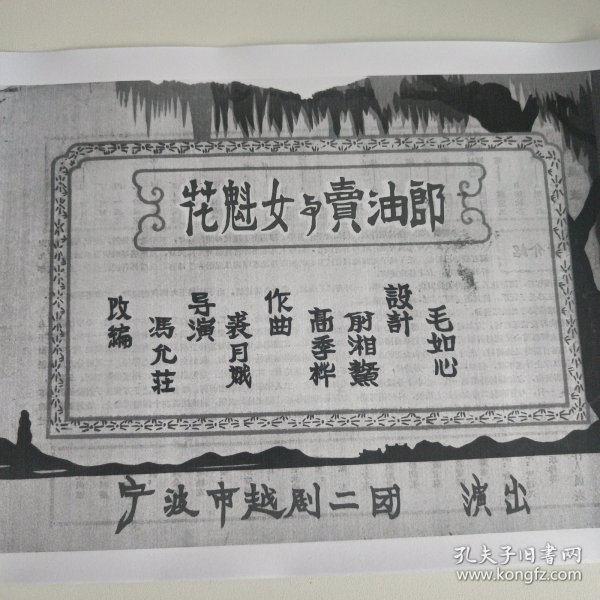 花魁女与賣油郎
改編
馮允莊
导演
裘月娥
作曲
高季桦
設計
毛如心
宁波市越剧二团 演出
孔夫子旧书网
www.kongfz.com